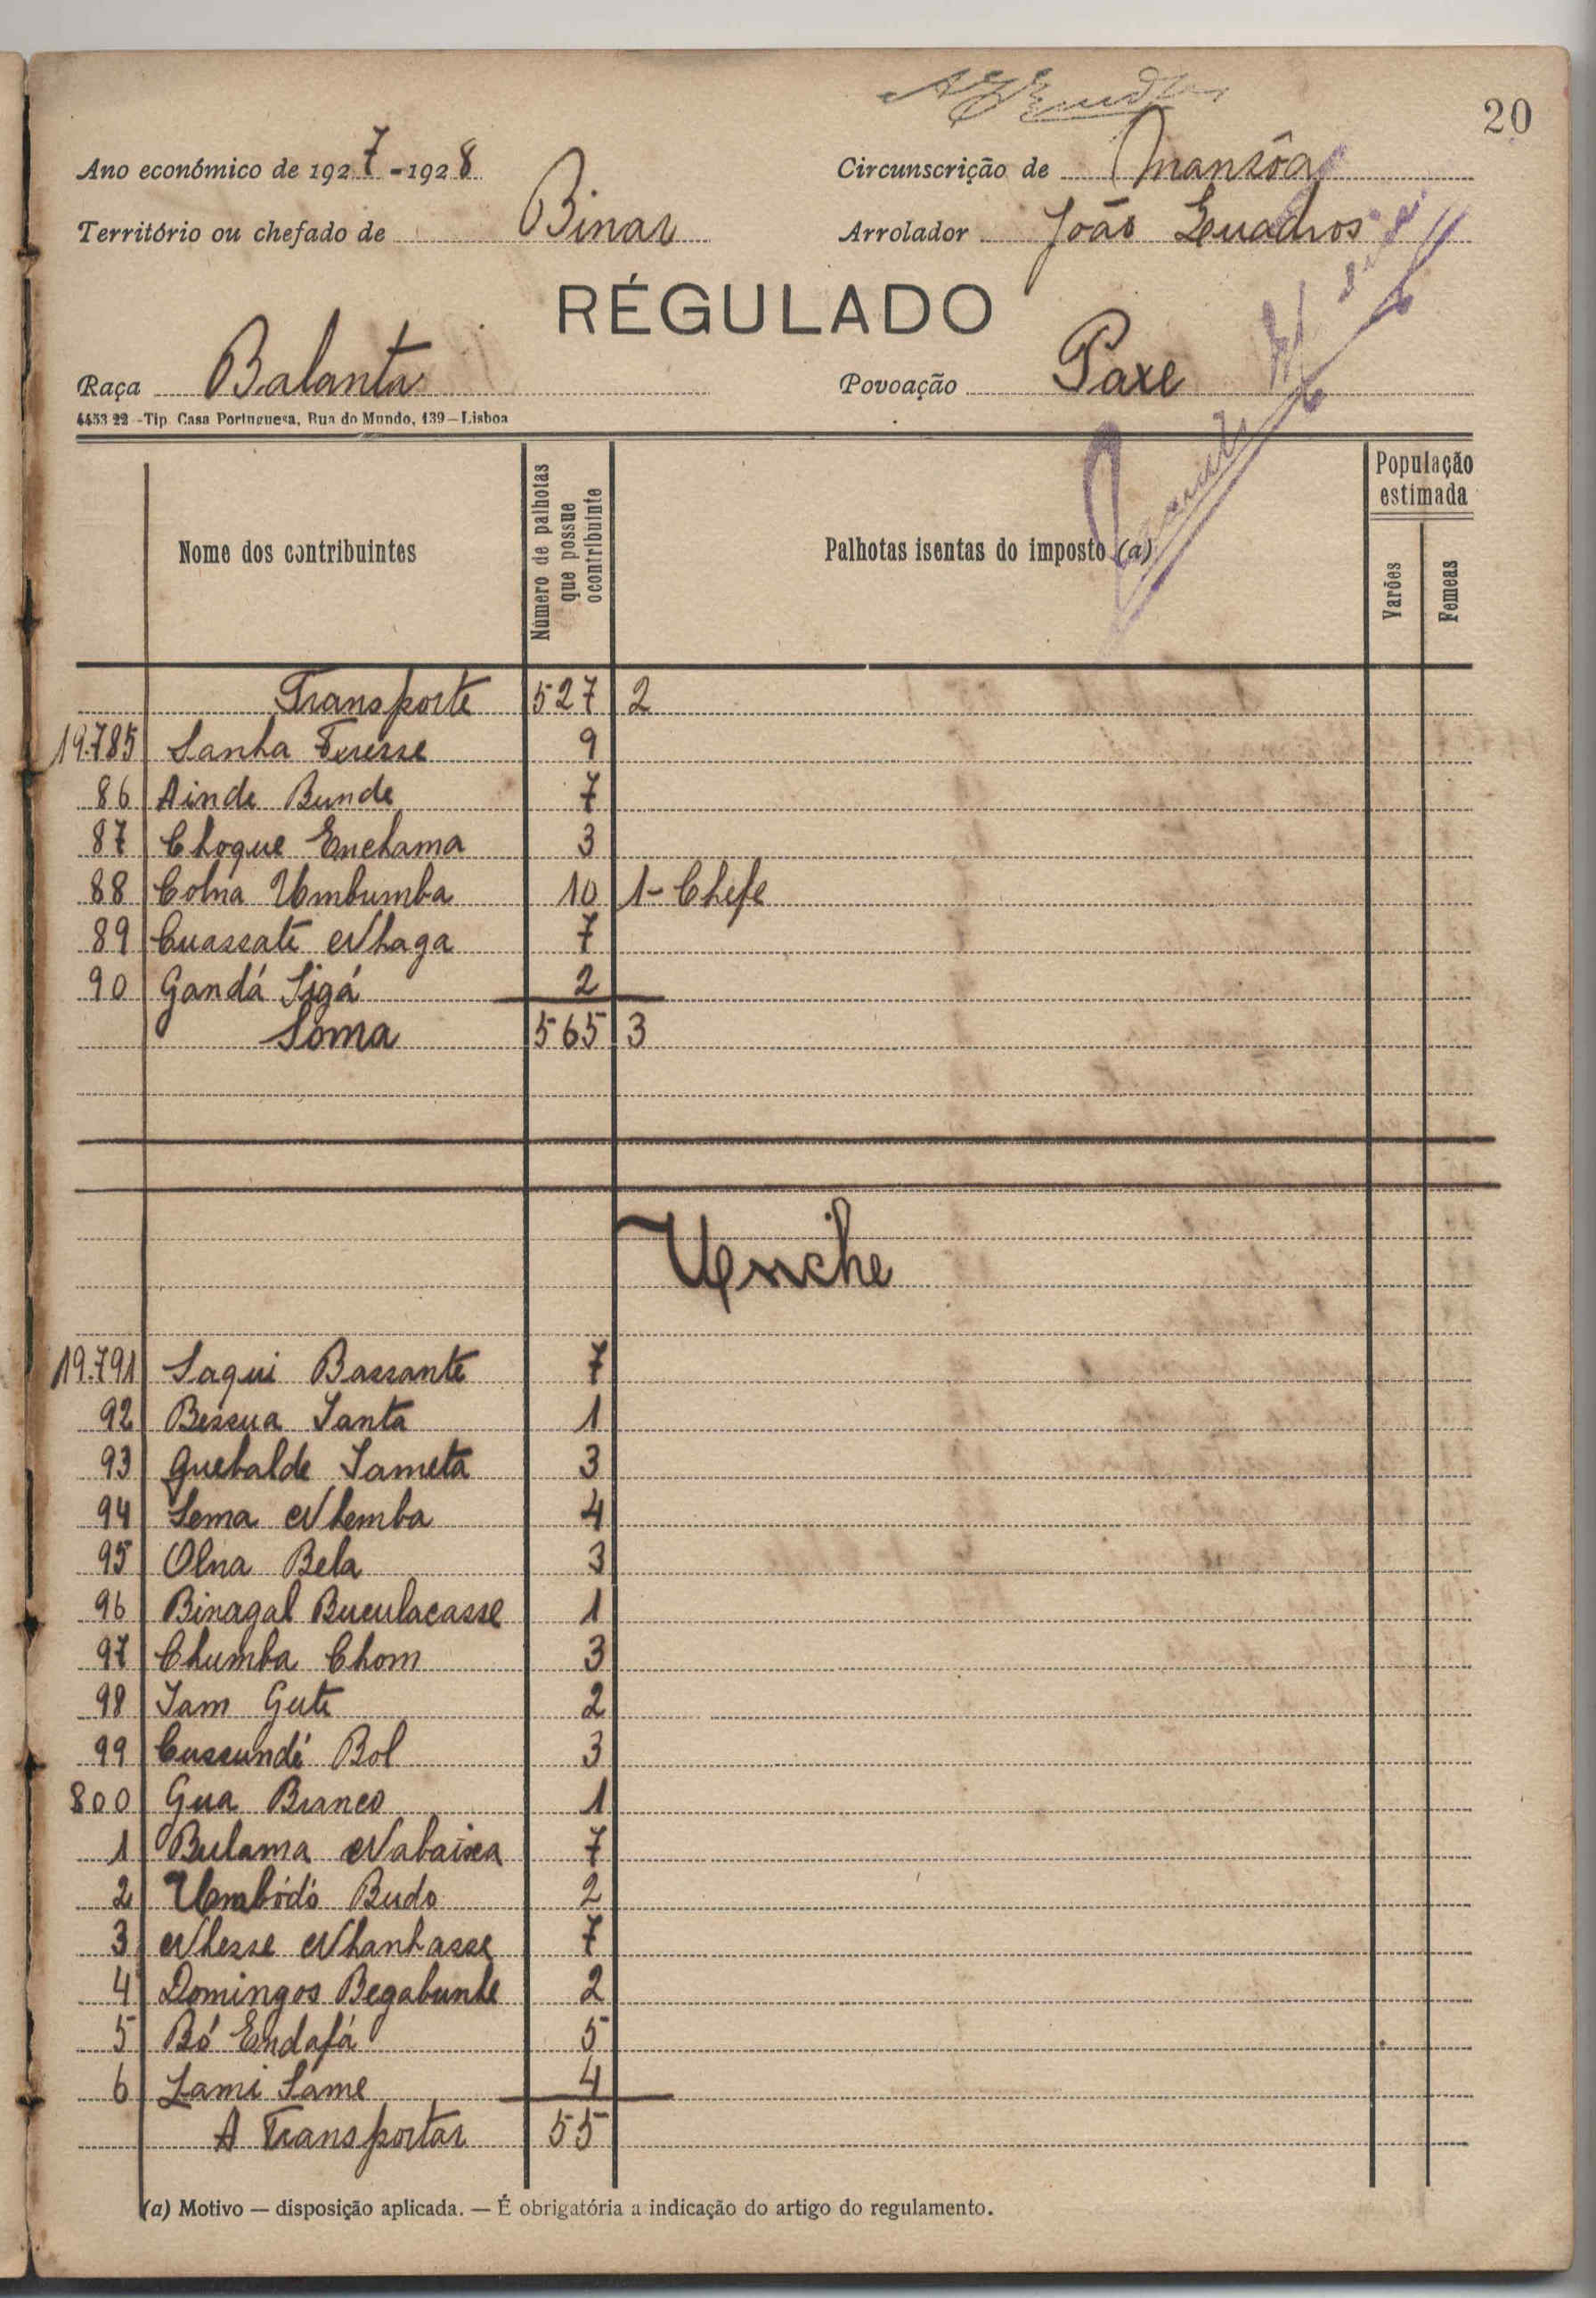 20
Ano económico de 1927-1928 Circunscrição de Mansôa
Território ou chefado de Binar Arrolador João Quadros
RÉGULADO
Raça Balanta Povoação Paxe
4453 22 -Tip. Casa Portuguesa, Rua do Mundo, 139—Lisboa
Nome dos contribuintes Número de palhotas que possue o contribuinte Palhotas isentas do imposto (a) População estimada Varões Femeas
Transporte 527 2
19.785 Sanha 9
86 Ainde Bunde 7
87 Choque Enchama 3
88 Colna Umbumba 10 1- Chefe
89 Cuassate Nhaga 7
90 Gandá Sigá 2
Soma 565 3
Uenche
19.791 Saqui Bassante 7
92 Bessua Santa 1
93 Guebalde Sameta 3
94 Sema Nhemba 4
95 Olna Bela 3
96 Binagal Buculacasse 1
97 Chumba Chom 3
98 Sam Gute 2
99 Cussundé Bol 3
800 Gua Branco 1
1 Bulama Nabaixa 7
2 Umbódó Budo 2
3 Nhesse Nhanhasse 7
4 Domingos Begabunhe 2
5 Bó Endafá 5
6 Lami Same 4
A Transportar 55
(a) Motivo — disposição aplicada. — É obrigatória a indicação do artigo do regulamento.